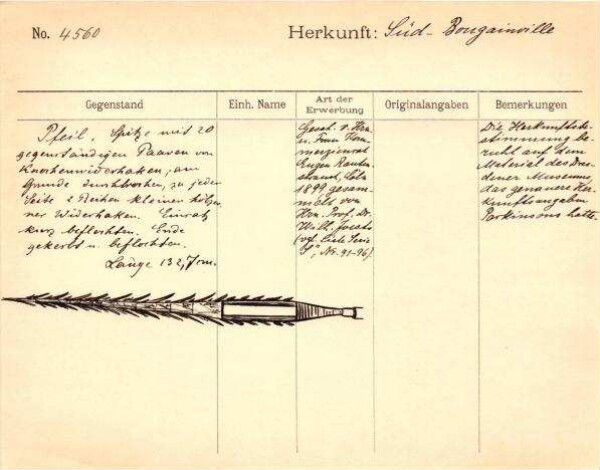 No. 4560
Herkunft: Süd-Bougainville
Gegenstand
Einh. Name
Art der Erwerbung
Originalangaben
Bemerkungen
Pfeil. Spitze mit 20
gegenständigen Paaren von
Knochenwiderhaken, am
Grunde durchbrochen, zu jeder
Seite 2 Reihen kleiner hölzer-
ner Widerhaken. Einsatz
kurz beflochten. Ende
gekerbt u. beflochten.
Länge 132,7 cm.
Gesch. v. Hrn.
u. Frau Kom-
merzienrat
Eugen Rauten-
strauch, Cöln
1899 gesam-
melt von
Hrn. Prof. Dr.
Wilh. Joest
(vgl. Liste Serie
Nr. 91-96).
Die Herkunftsbe-
stimmung be-
ruht auf dem
Material des Dres-
dener Museums,
das genauere Her-
kunftsangaben
Parkinsons hatte.